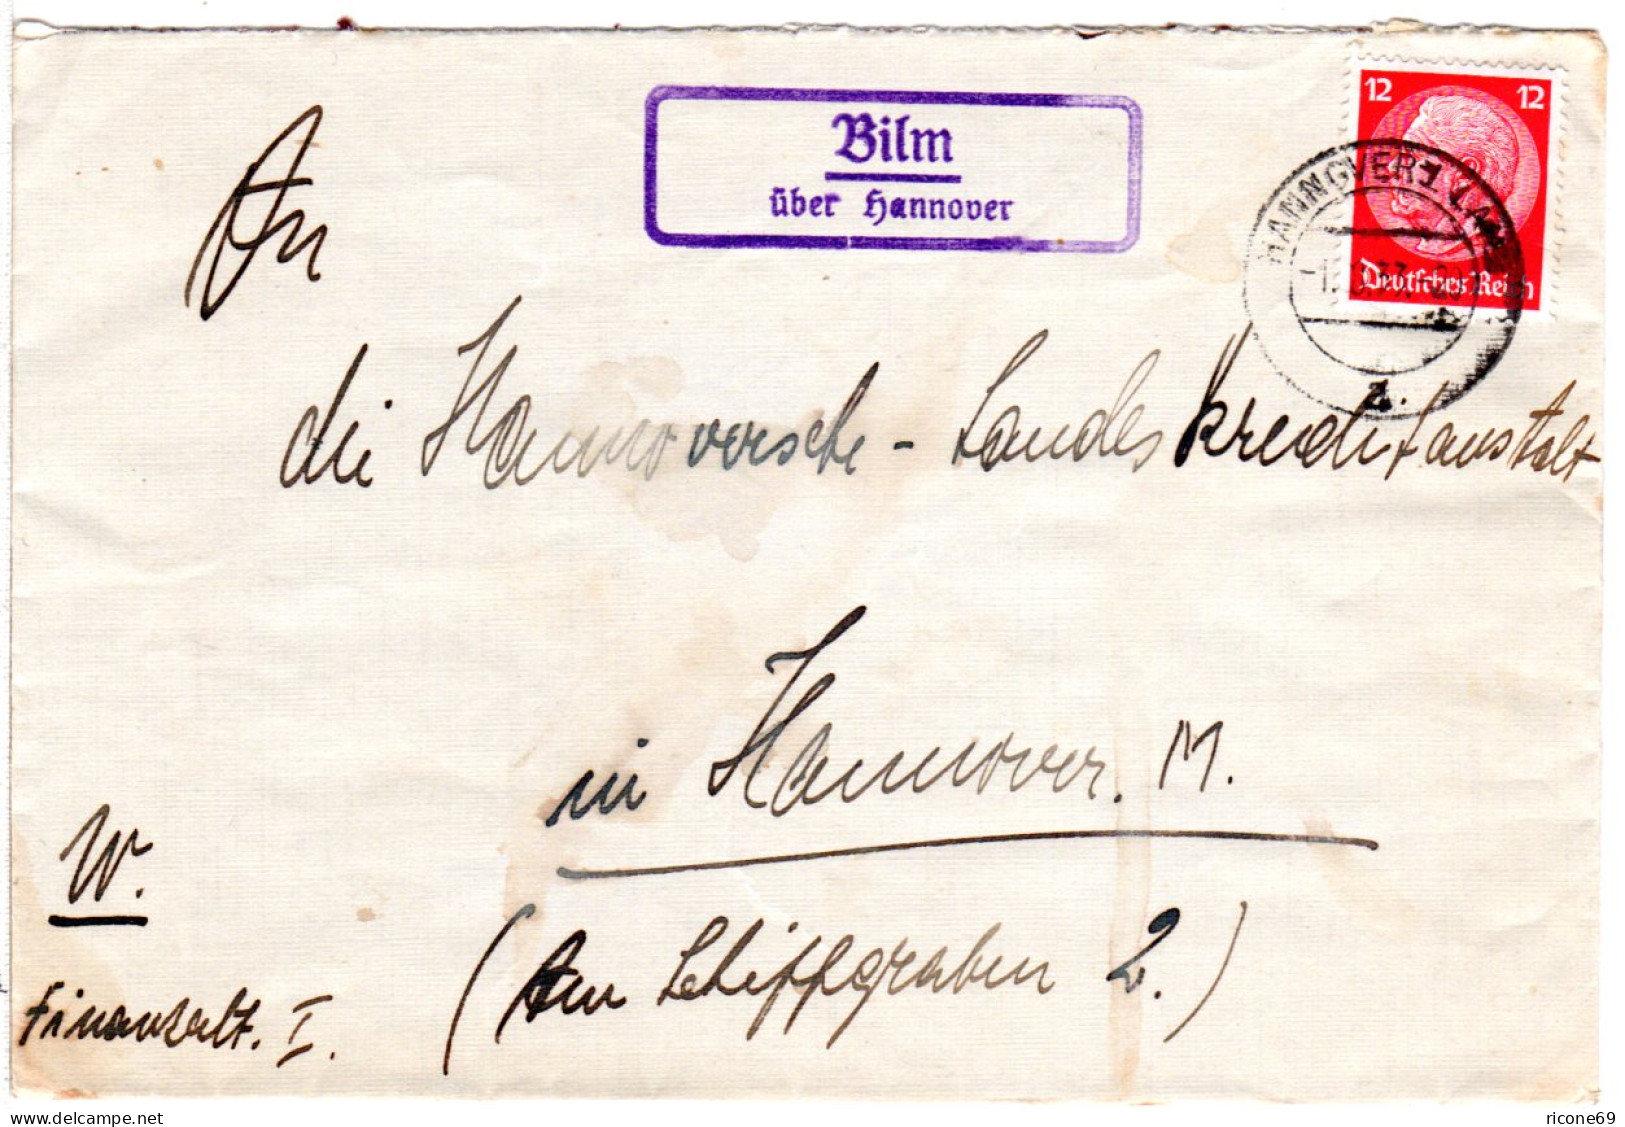 Bilm
über Hannover
12 12
Deutsches Reich
HANNOVER 1 LAND
a
An
die Hannoversche - Landeskreditanstalt
in Hannover. M.
(Am Schiffgraben 2.)
W.
Finanzabt. I.
delcampe.net
ricone69